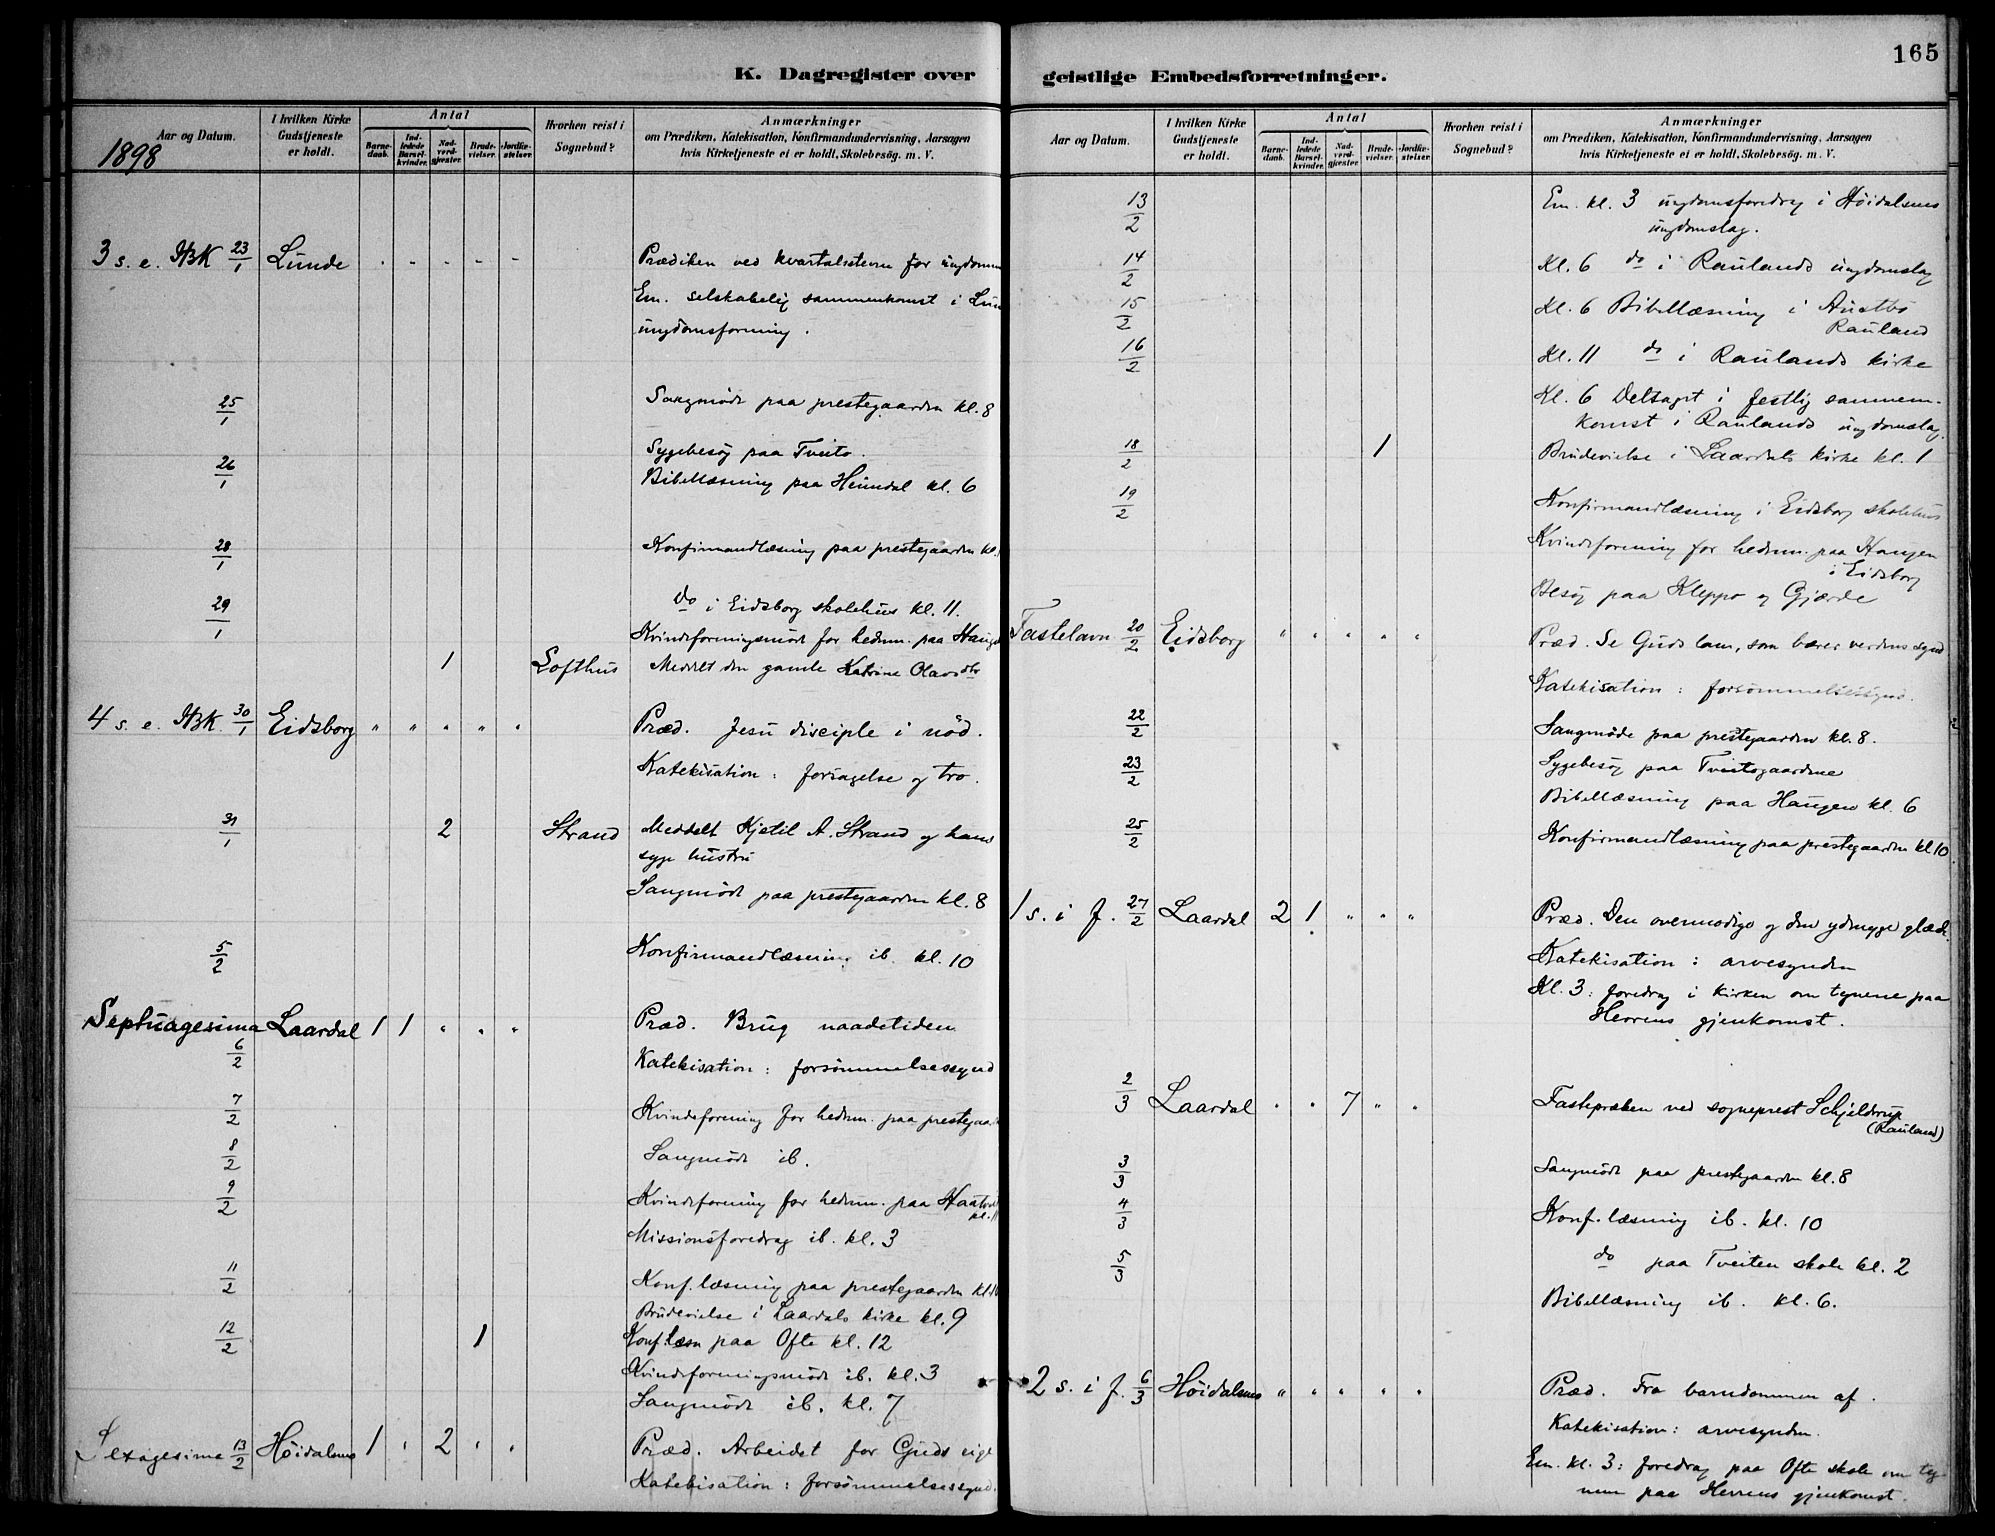 165
K. Dagregister over geistlige Embedsforretninger.
Aar og Datum.
I hvilken Kirke Gudstjeneste er holdt.
Antal
Barnedaab.
Indledede Barselkvinder.
Nadverdgjester.
Brudevielser.
Jordfæstelser.
Hvorhen reist i Sognebud?
Anmærkninger
om Prædiken, Katekisation, Konfirmandundervisning, Aarsagen
hvis Kirketjeneste ei er holdt, Skolebesög. m. V.
1898
3 s. e. HBK 23/1 Lunde - - - - - Prædiken ved kvartalsstevne for ungdommen
Em. selskabelig sammenkomst i Lun
ungdomsforening.
25/1 Sangmöde paa prestegaarden kl. 8
26/1 Sygebesög paa Tveito.
Bibellæsning paa Heimdal kl. 6
28/1 Konfirmandlæsning paa prestegaarden kl.
29/1 do i Eidsborg skolehus kl. 11.
Kvindeforeningsmöde for hedem. paa Haug
1 Lofthus Meddelt den gamle Katrine Olavsdtr
4 s. e. HBK. 30/1 Eidsborg " " " " " Præd. Jesu disciple i nöd.
Katekisation: forsagelse og tro.
31/1 2 Strand Meddelt Kjetil A. Strand og hans
syge hustru
Sangmöde paa prestegaarden kl. 8
5/2 Konfirmandlæsning ib. kl. 10
Septuagesima 6/2 Laardal 1 1 " " " Præd. Brug naadetiden
Katekisation: forsömmelsessynd
7/2 Kvindeforening for hedem. paa prestegaar
8/2 Sangmöde ib.
9/2 Kvindeforening for hedem. paa
kl. 11
Missionsforedrag ib. kl. 3
11/2 Konf. læsning paa prestegaarden kl. 10
Brudevielse i Laardals kirke kl. 9
12/2 1 Konf. læsn paa Ofte kl. 12
Kvindeforeningsmöde ib. kl. 3
Sangmöde ib. kl. 7
Sexagesima 13/2 Höidalsmo 1 " 2 " " Præd. Arbeidet for Guds rige
Katekisation: forsömmelsessynd.
Aar og Datum.
I hvilken Kirke Gudstjeneste er holdt.
Antal
Barnedaab.
Indledede Barselkvinder.
Nadverdgjester.
Brudevielser.
Jordfæstelser.
Hvorhen reist i Sognebud?
Anmærkninger
om Prædiken, Katekisation, Konfirmandundervisning, Aarsagen
hvis Kirketjeneste ei er holdt, Skolebesög. m. V.
13/2 Em. kl. 3 ungdomsforedrag i Höidalsmo
ungdomslag.
14/2 Kl. 6 do i Raulands ungdomslag
15/2 Kl. 6 Bibellæsning i Austbö
Rauland
16/2 Kl. 11 do i Raulands kirke
Kl. 6 Deltaget i festlig sammen-
komst i Raulands ungdomslag.
18/2 1 Brudevielse i Laardals kirke kl. 1
19/2 Konfirmandlæsning i Eidsborg skolehus
Kvindeforening for hedem. paa Haugen
i Eidsborg
Besög paa Kleppo og Gjærde
Fastelavn 20/2 Eidsborg " " " " " Præd. Se Guds lam, som bærer verdens synd
Katekisation: forsömmelsessynd.
22/2 Sangmöde paa prestegaarden kl. 8.
23/2 Sygebesög paa Tveitogaardene
Bibellæsning paa Haugen kl. 6
25/2 Konfirmandlæsning paa prestegaarden kl 10
1 s. i f. 27/2 Laardal 2 1 " " " Præd. Den overmodige og den ydmyge glæde.
Katekisation: arvesynden
Kl. 3: foredrag i kirken om tegnene paa
Herrens gjenkomst.
2/3 Laardal " " 7 " " Fastepræken ved sogneprest Schjelderup
(Rauland)
3/3 Sangmöde paa prestegaarden kl. 8
4/3 Konf. læsning ib. kl. 10
5/3 do paa Tveiten skole kl. 2
Bibellæsning ib. kl. 6.
2 s. i f. 6/3 Höidalsmo " " " " " Præd. Fra barndommen af.
Katekisation: arvesynden.
Em. kl. 3: foredrag paa Ofte skole om teg-
nene paa Herrens gjenkomst.